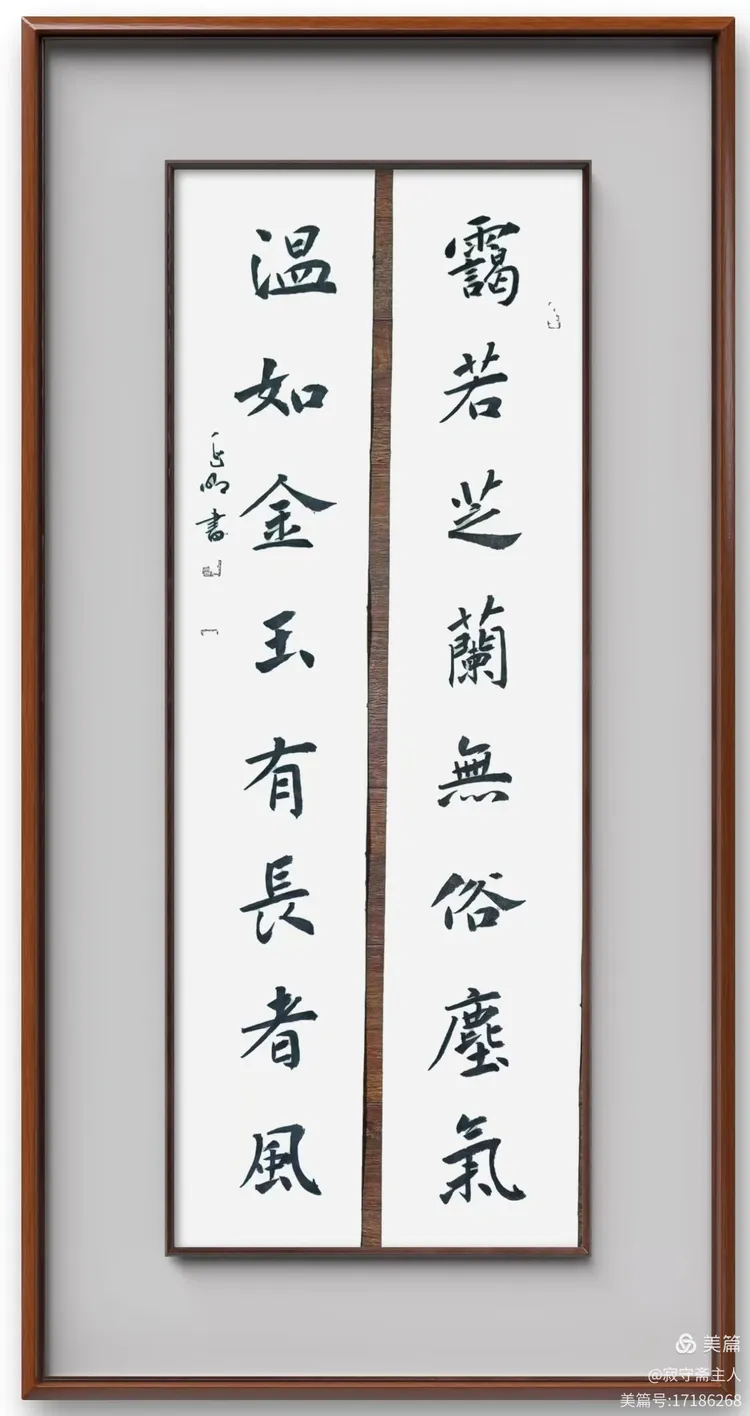 靄若芝蘭無俗塵氣
温如金玉有長者風
明書
美篇
@寂守斋主人
美篇号:17186268